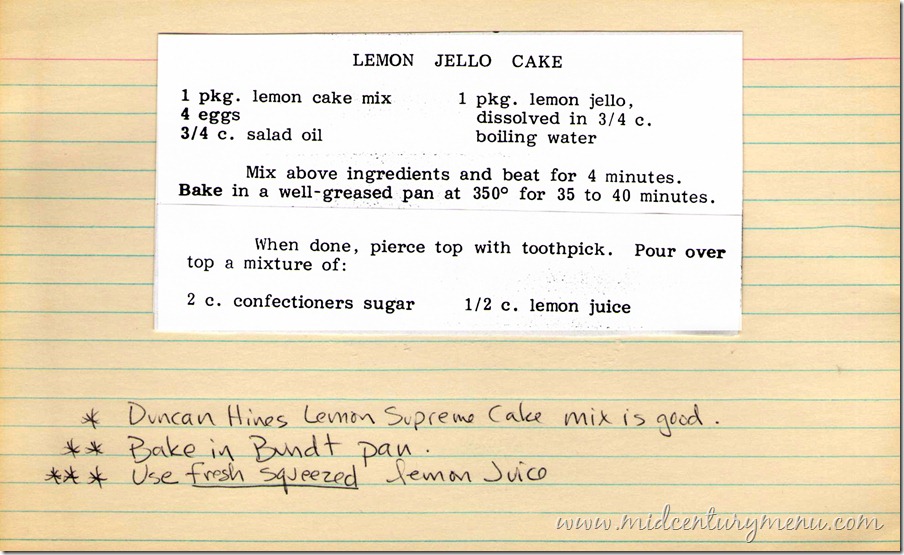 LEMON JELLO CAKE
1 pkg. lemon cake mix
4 eggs
3/4 c. salad oil
1 pkg. lemon jello,
dissolved in 3/4 c.
boiling water
Mix above ingredients and beat for 4 minutes.
Bake in a well-greased pan at 350° for 35 to 40 minutes.
When done, pierce top with toothpick. Pour over
top a mixture of:
2 c. confectioners sugar 1/2 c. lemon juice
* Duncan Hines Lemon Supreme Cake mix is good.
** Bake in Bundt pan.
*** Use fresh squeezed lemon Juice
www.midcenturymenu.com